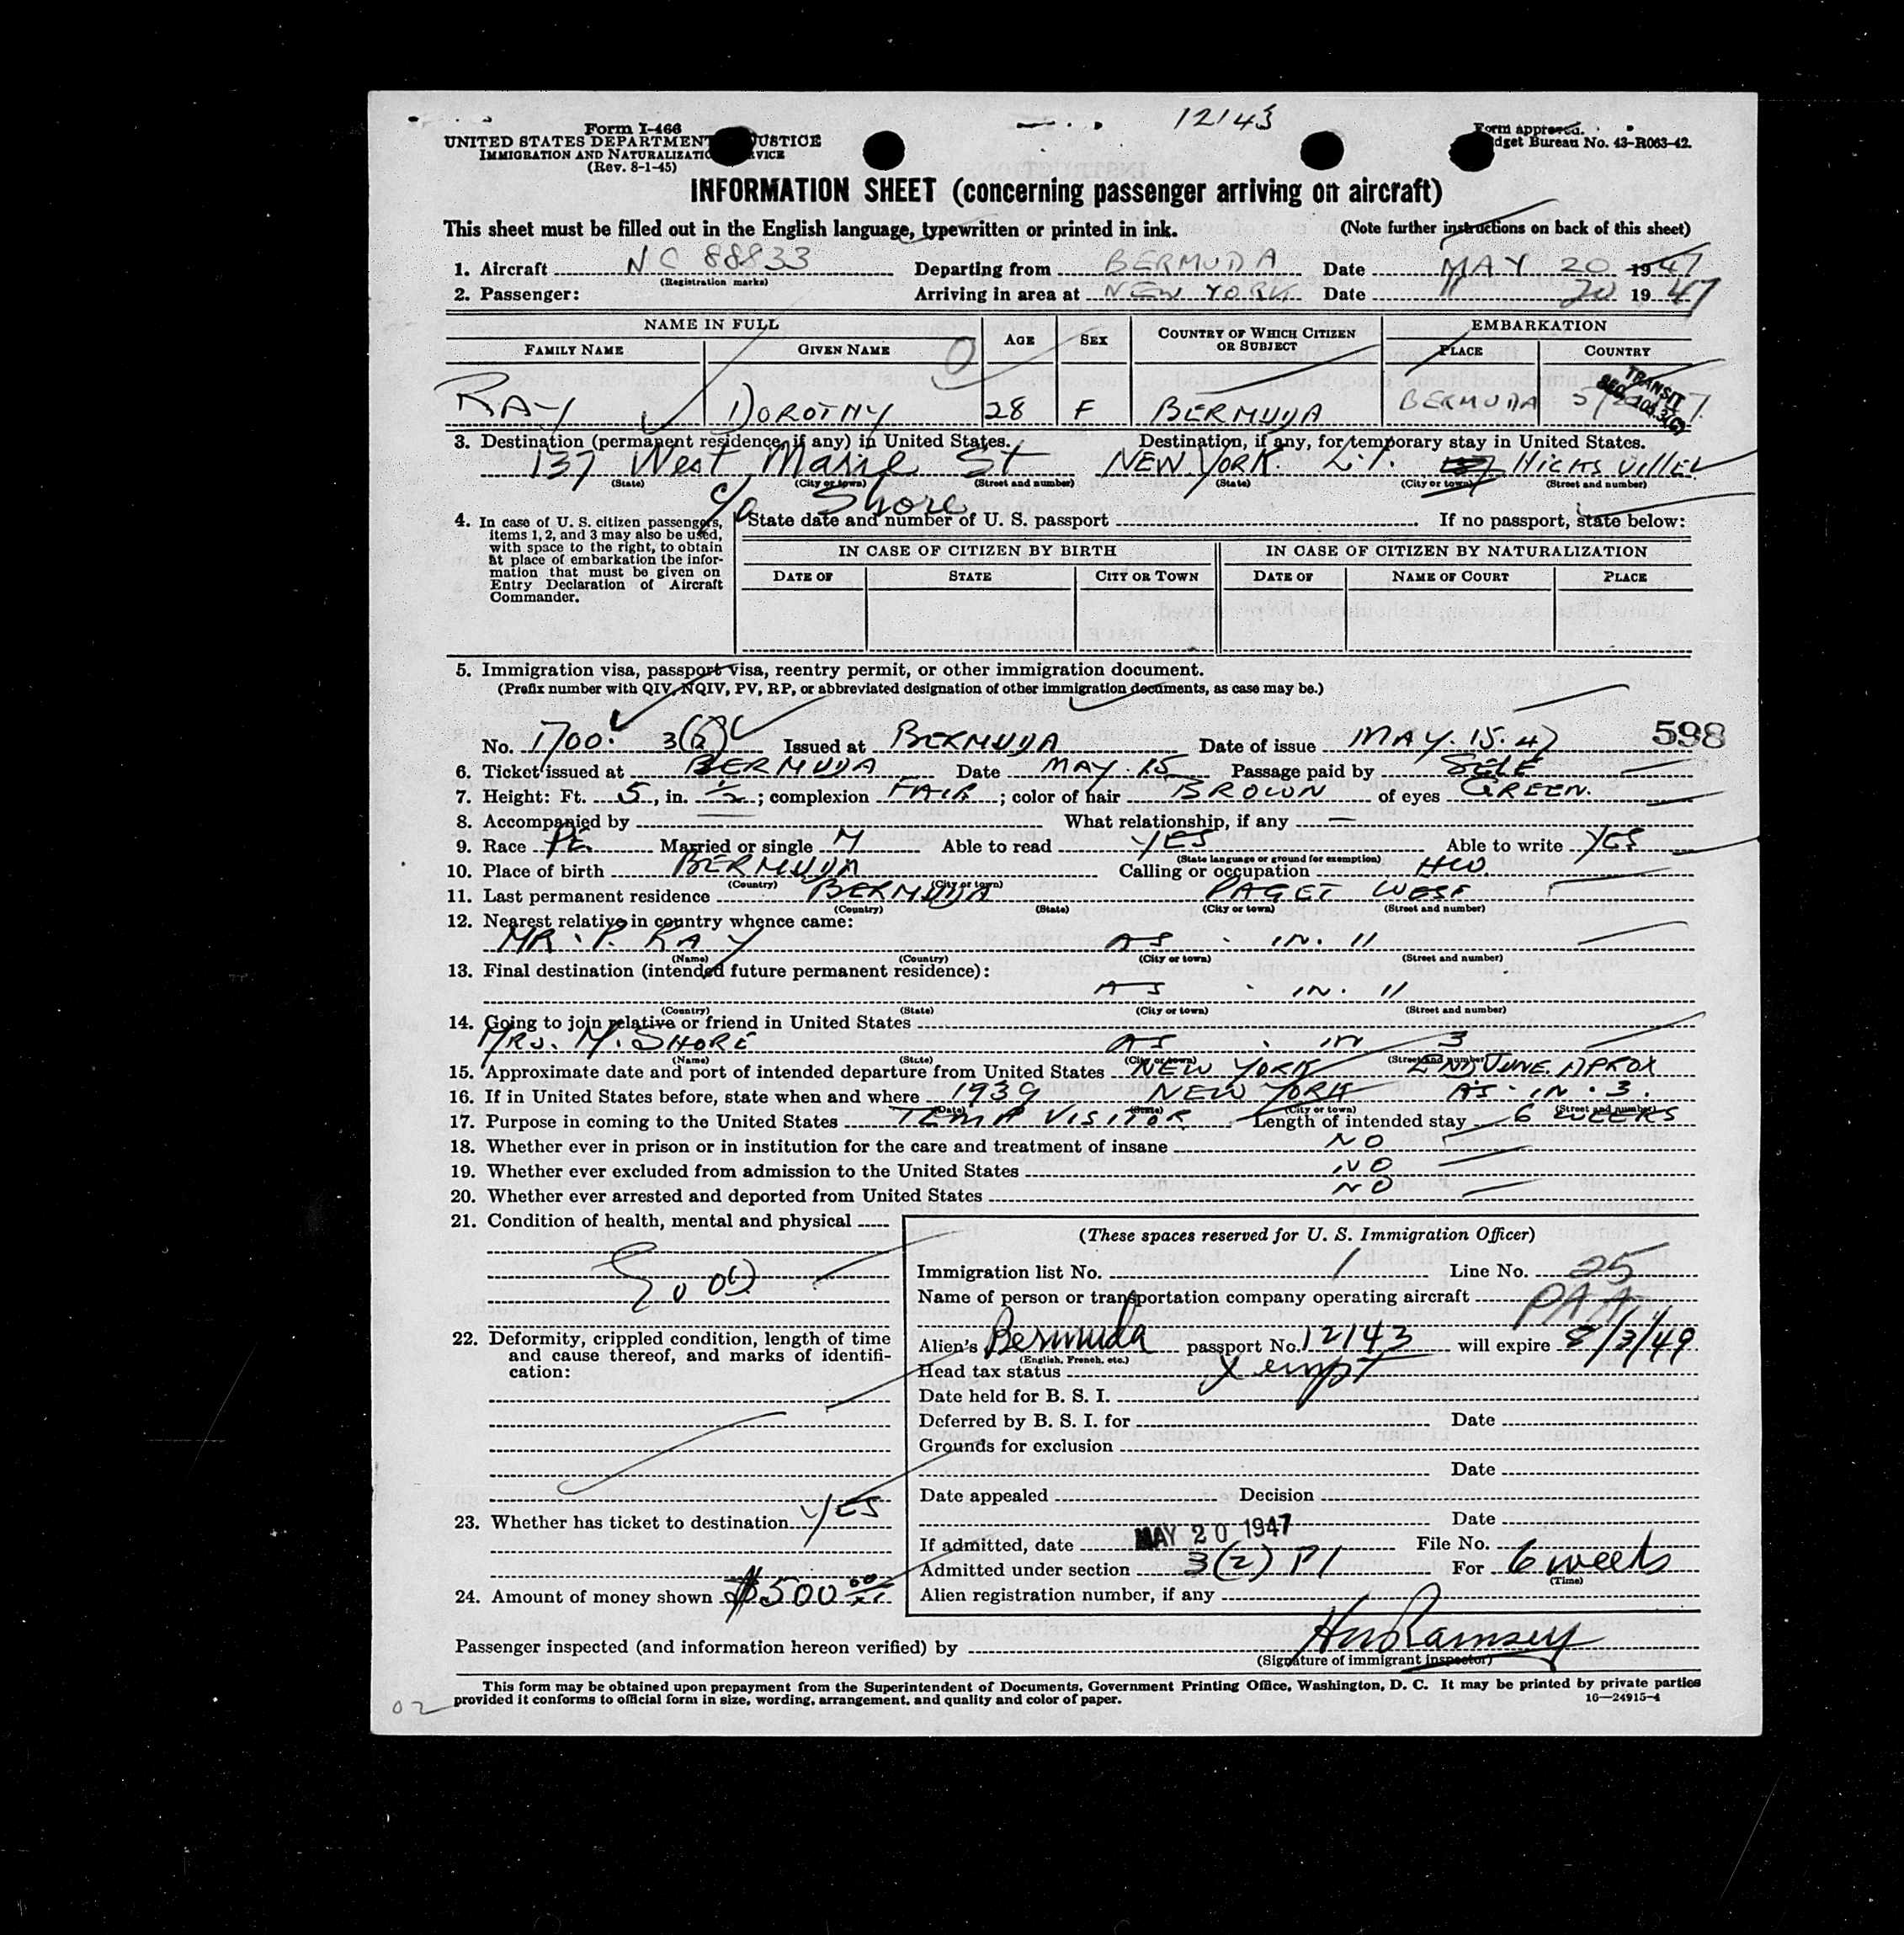 12143
Form I-466
UNITED STATES DEPARTMENT JUSTICE
IMMIGRATION AND NATURALIZATION SERVICE
(Rev. 8-1-45)
Form approved.
Budget Bureau No. 43-R063-42.
INFORMATION SHEET (concerning passenger arriving on aircraft)
This sheet must be filled out in the English language, typewritten or printed in ink. (Note further instructions on back of this sheet)
1. Aircraft NC 88833 Departing from BERMUDA Date MAY 20 1947
(Registration marks)
2. Passenger: Arriving in area at NEW YORK Date 20 1947
NAME IN FULL AGE SEX COUNTRY OF WHICH CITIZEN OR SUBJECT EMBARKATION
FAMILY NAME GIVEN NAME PLACE COUNTRY
RAY DOROTHY 28 F BERMUDA BERMUDA
TRANSIT
3. Destination (permanent residence, if any) in United States. Destination, if any, for temporary stay in United States.
137 West Marie St NEW YORK. L.I. HICKSVILLE
(State) (City or town) (Street and number) (State) (City or town) (Street and number)
c/o Shore
4. In case of U. S. citizen passengers, items 1, 2, and 3 may also be used, with space to the right, to obtain at place of embarkation the information that must be given on Entry Declaration of Aircraft Commander.
State date and number of U. S. passport If no passport, state below:
IN CASE OF CITIZEN BY BIRTH IN CASE OF CITIZEN BY NATURALIZATION
DATE OF STATE CITY OR TOWN DATE OF NAME OF COURT PLACE
5. Immigration visa, passport visa, reentry permit, or other immigration document.
(Prefix number with QIV, NQIV, PV, RP, or abbreviated designation of other immigration documents, as case may be.)
598
No. 1700. 3(2) Issued at BERMUDA Date of issue MAY. 15. 47
6. Ticket issued at BERMUDA Date MAY. 15 Passage paid by SELF
7. Height: Ft. 5, in. ½; complexion FAIR; color of hair BROWN of eyes GREEN.
8. Accompanied by What relationship, if any —
9. Race Married or single M Able to read YES Able to write YES
(State language or ground for exemption)
10. Place of birth BERMUDA Calling or occupation HW.
(Country) (City or town)
11. Last permanent residence BERMUDA PAGET WEST
(Country) (State) (City or town) (Street and number)
12. Nearest relative in country whence came:
MR. P. RAY AS . IN. 11
(Name) (Country) (City or town) (Street and number)
13. Final destination (intended future permanent residence):
AS . IN. 11
(Country) (State) (City or town) (Street and number)
14. Going to join relative or friend in United States
MRS. M. SHORE AS . IN 3
(Name) (State) (City or town) (Street and number)
15. Approximate date and port of intended departure from United States NEW YORK END JUNE. APROX
16. If in United States before, state when and where 1939 NEW YORK AS. IN. 3.
(Date) (State) (City or town) (Street and number)
17. Purpose in coming to the United States TEMP VISITOR Length of intended stay 6 WEEKS
18. Whether ever in prison or in institution for the care and treatment of insane NO
19. Whether ever excluded from admission to the United States NO
20. Whether ever arrested and deported from United States NO
21. Condition of health, mental and physical
Good
22. Deformity, crippled condition, length of time and cause thereof, and marks of identification:
23. Whether has ticket to destination YES
24. Amount of money shown $500 00/xx
(These spaces reserved for U. S. Immigration Officer)
Immigration list No. 1 Line No. 25
Name of person or transportation company operating aircraft PAA
Alien's Bermuda passport No. 12143 will expire 8/3/49
(English, French, etc.)
Head tax status Xempt
Date held for B. S. I.
Deferred by B. S. I. for Date
Grounds for exclusion
Date
Date appealed Decision
Date
If admitted, date MAY 20 1947 File No.
Admitted under section 3(2) P1 For 6 weeks
(Time)
Alien registration number, if any
Passenger inspected (and information hereon verified) by Ramsey
(Signature of immigrant inspector)
This form may be obtained upon prepayment from the Superintendent of Documents, Government Printing Office, Washington, D. C. It may be printed by private parties
provided it conforms to official form in size, wording, arrangement, and quality and color of paper. 16—24915-4
02